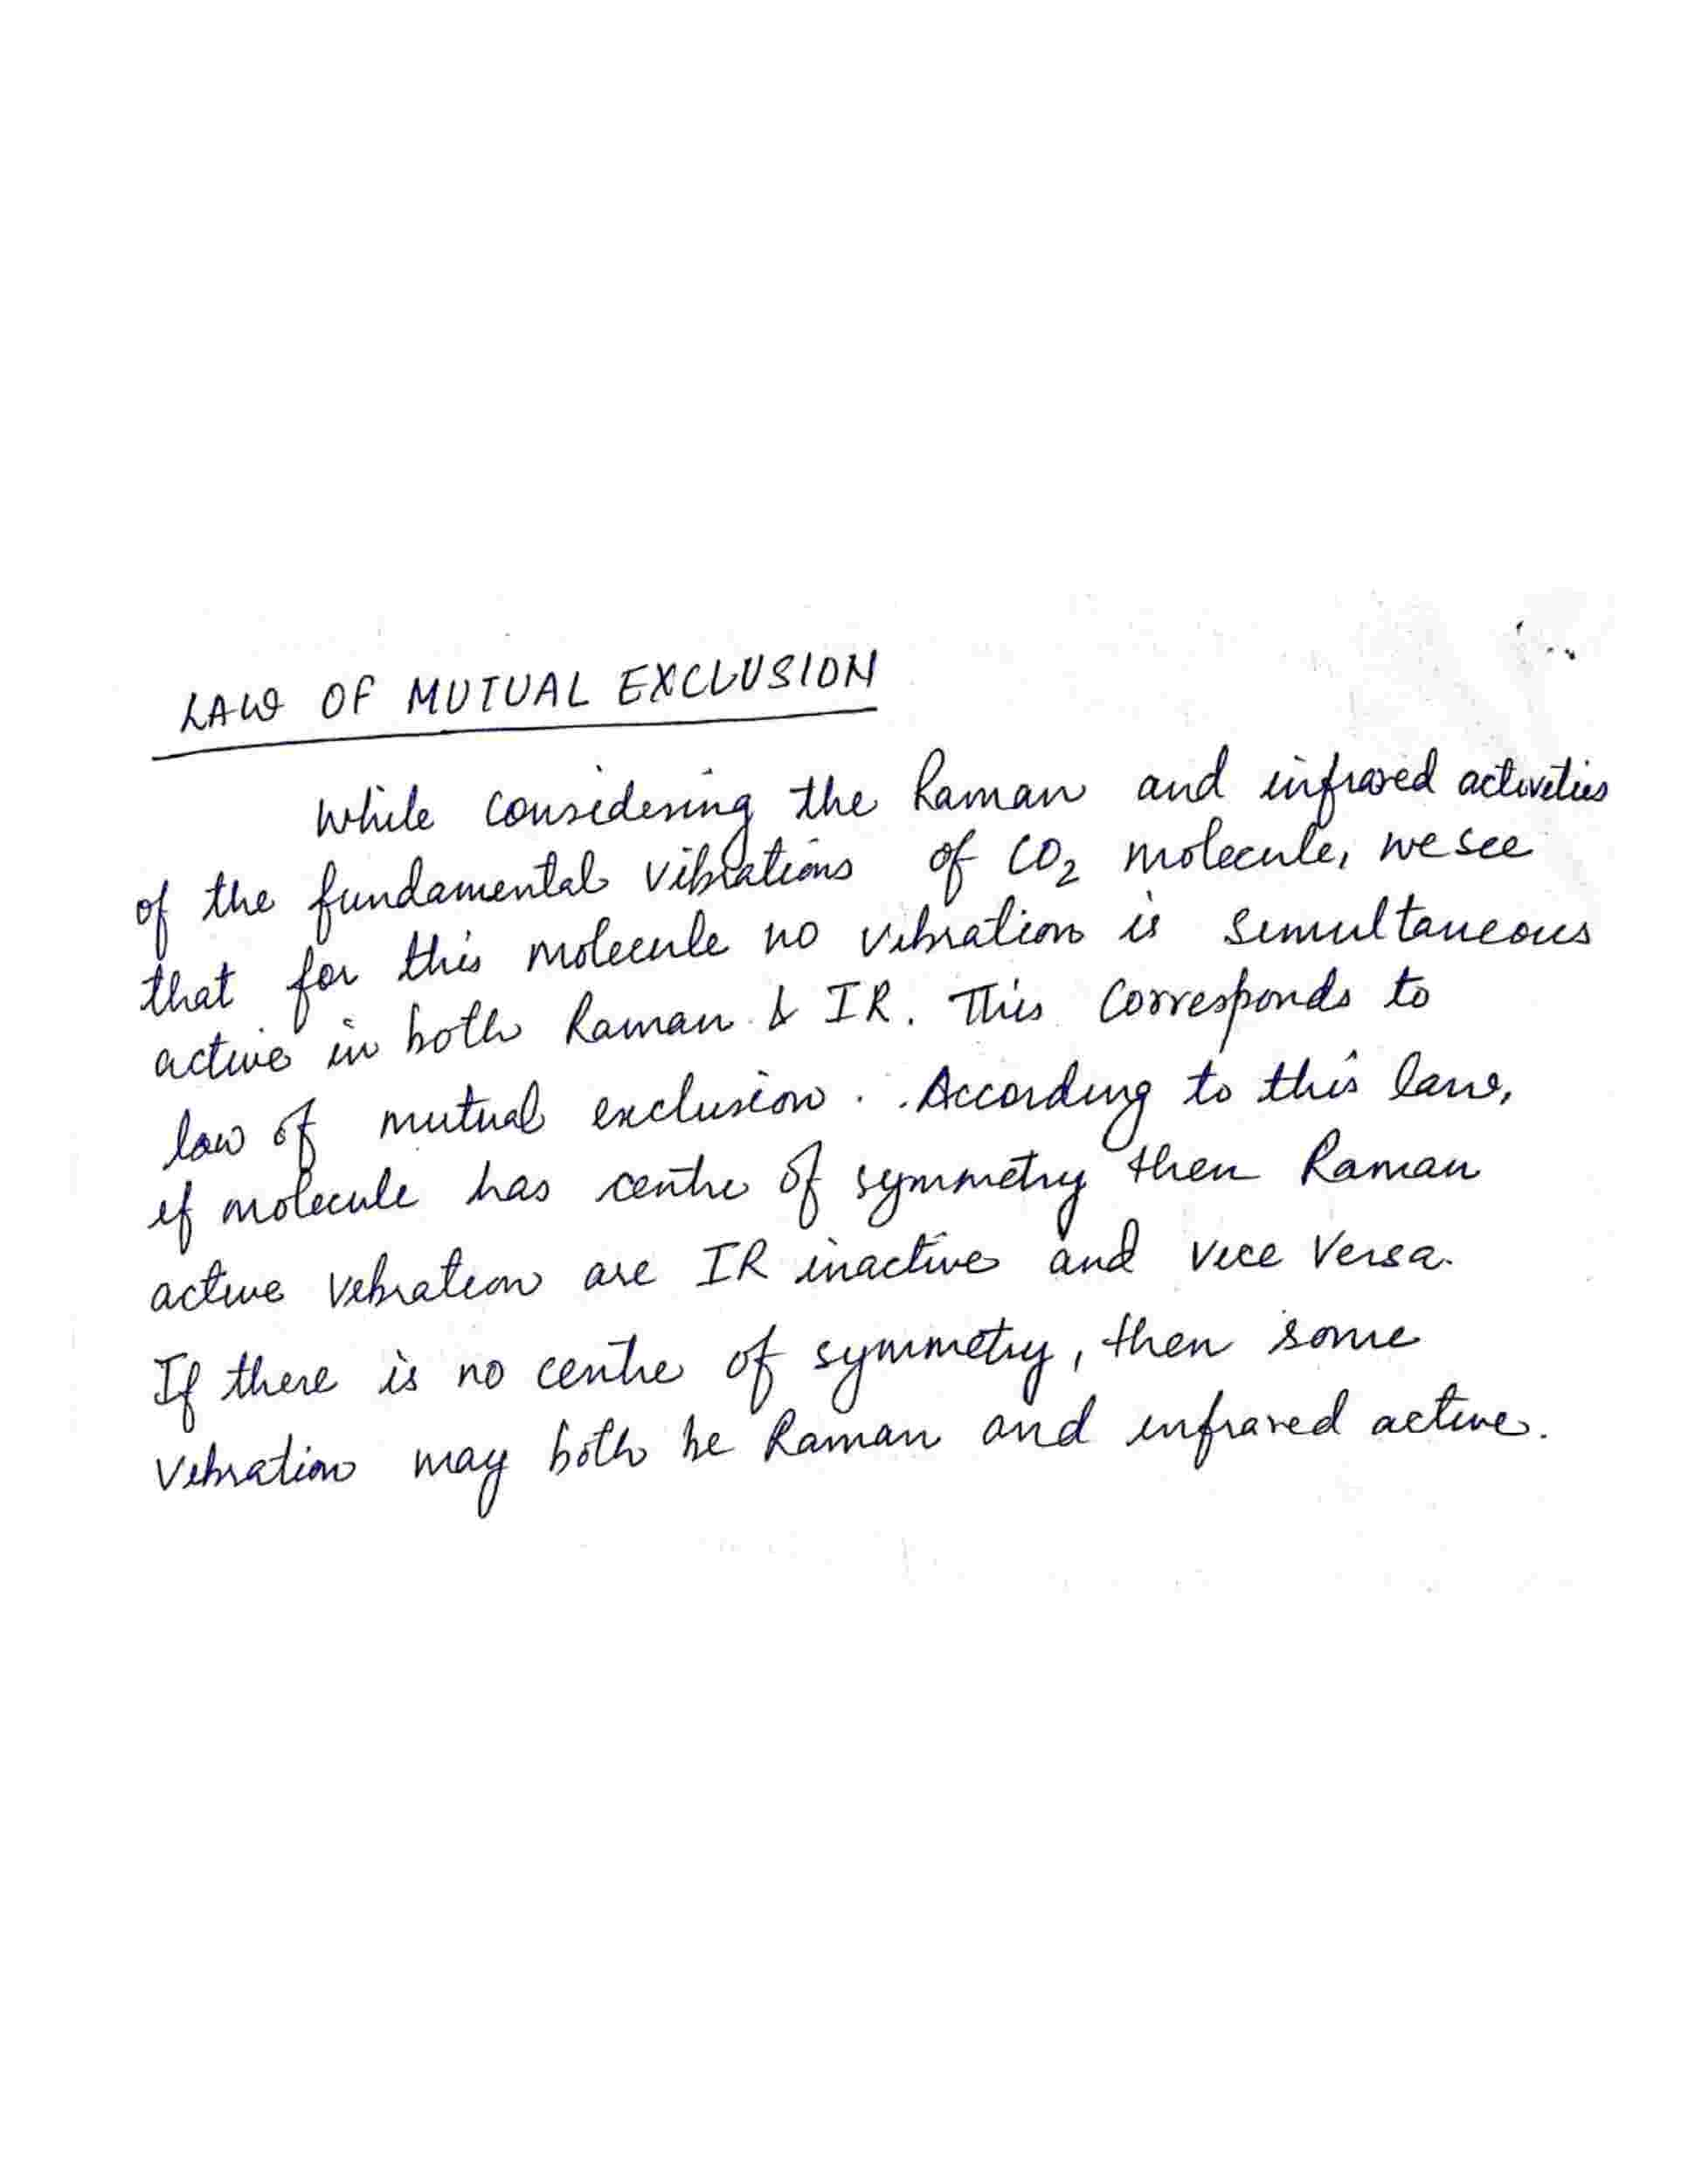 LAW OF MUTUAL EXCLUSION
While considering the Raman and infrared activities
of the fundamental vibrations of CO₂ molecule, we see
that for this molecule no vibration is simultaneous
active in both Raman & IR. This corresponds to
law of mutual exclusion. According to this law,
if molecule has centre of symmetry then Raman
active vibration are IR inactive and vice versa.
If there is no centre of symmetry, then some
vibration may both be Raman and infrared active.